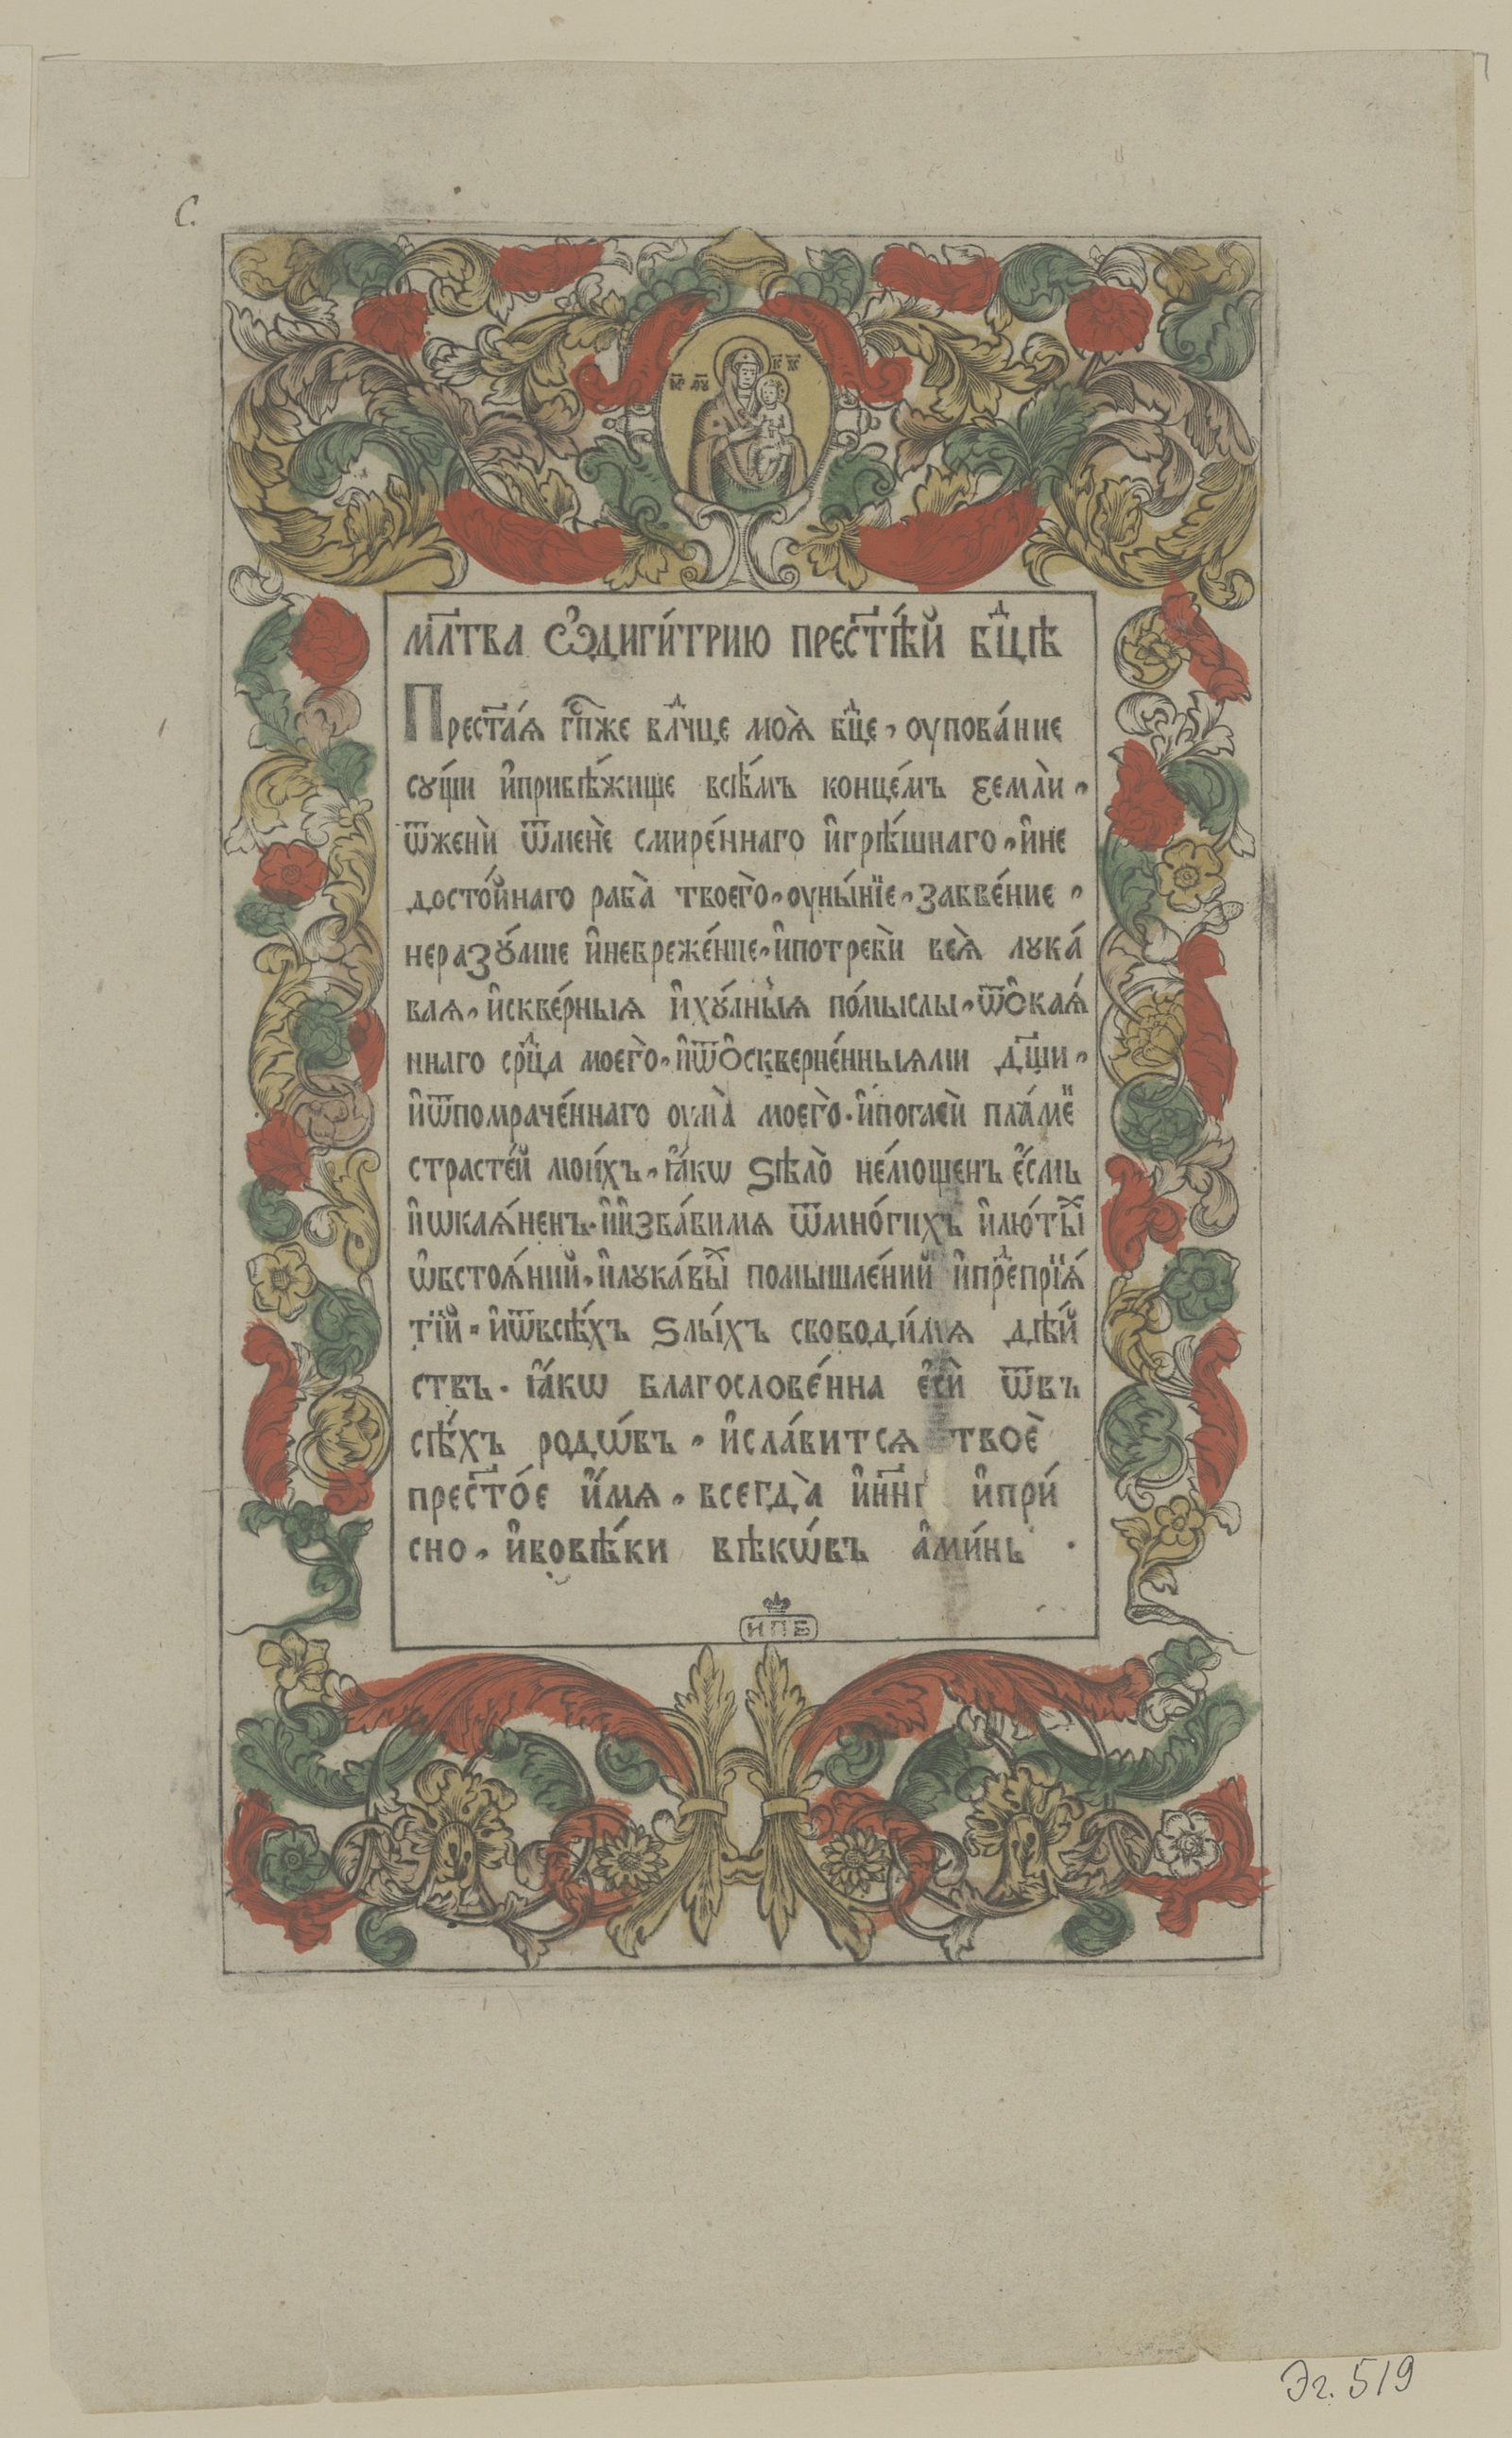 С.
М҃Р Ѳ҃У І҃С Х҃С
мл҃тва ѡ҆диги́трию прест҃ѣ́й бц҃дѣ
Прест҃а́ѧ гп҃же влⷣчце моѧ̀ бцⷣе, оупова́ние
су́щи и҆прибѣ́жище всѣ́мъ конце́мъ землѝ,
ѿженѝ ѿменѐ смире́ннаго и҆грѣ́шнаго, и҆не
досто́йнаго раба̀ твоего̀, оуны́нїе, забве́ние,
неразꙋ́мие и҆небреже́нпе, и҆потребѝ всѧ̀ лука́
ваѧ, и҆скве́рныѧ и҆хꙋ́лныѧ по́мыслы, ѿо҆каѧ́
ннаго срⷣца моего̀, и҆ѿо҆скверне́нныѧми дш҃и,
и҆ѿпомраче́ннаго оума̀ моего̀. и҆погасѝ пла́мѐ
страсте́й мои́хъ, ꙗ҆́кѡ ѕѣло̀ не́мощенъ е҆́смь
и҆ѡкаѧ́ненъ. и҆и҆зба́вимѧ ѿмно́гихъ и҆лю́тыⷯ
ѡ҆бстоѧ́ний, и҆лука́выⷯ помышле́ний и҆преⷣприѧ́
тїй, и҆ѿвсѣ́хъ ѕлы́хъ свободи́мѧ дѣ́й
ствъ. ꙗ҆́кѡ благослове́нна е҆сѝ ѿвъ
сѣ́хъ родѡ́въ, и҆сла́витсѧ твоѐ
прест҃о́е и҆́мѧ, всегда̀ и҆нн҃ѣ и҆при́
сно, и҆вовѣ́ки вѣкѡ́въ а҆ми́нь.
ИПБ
Эг. 519